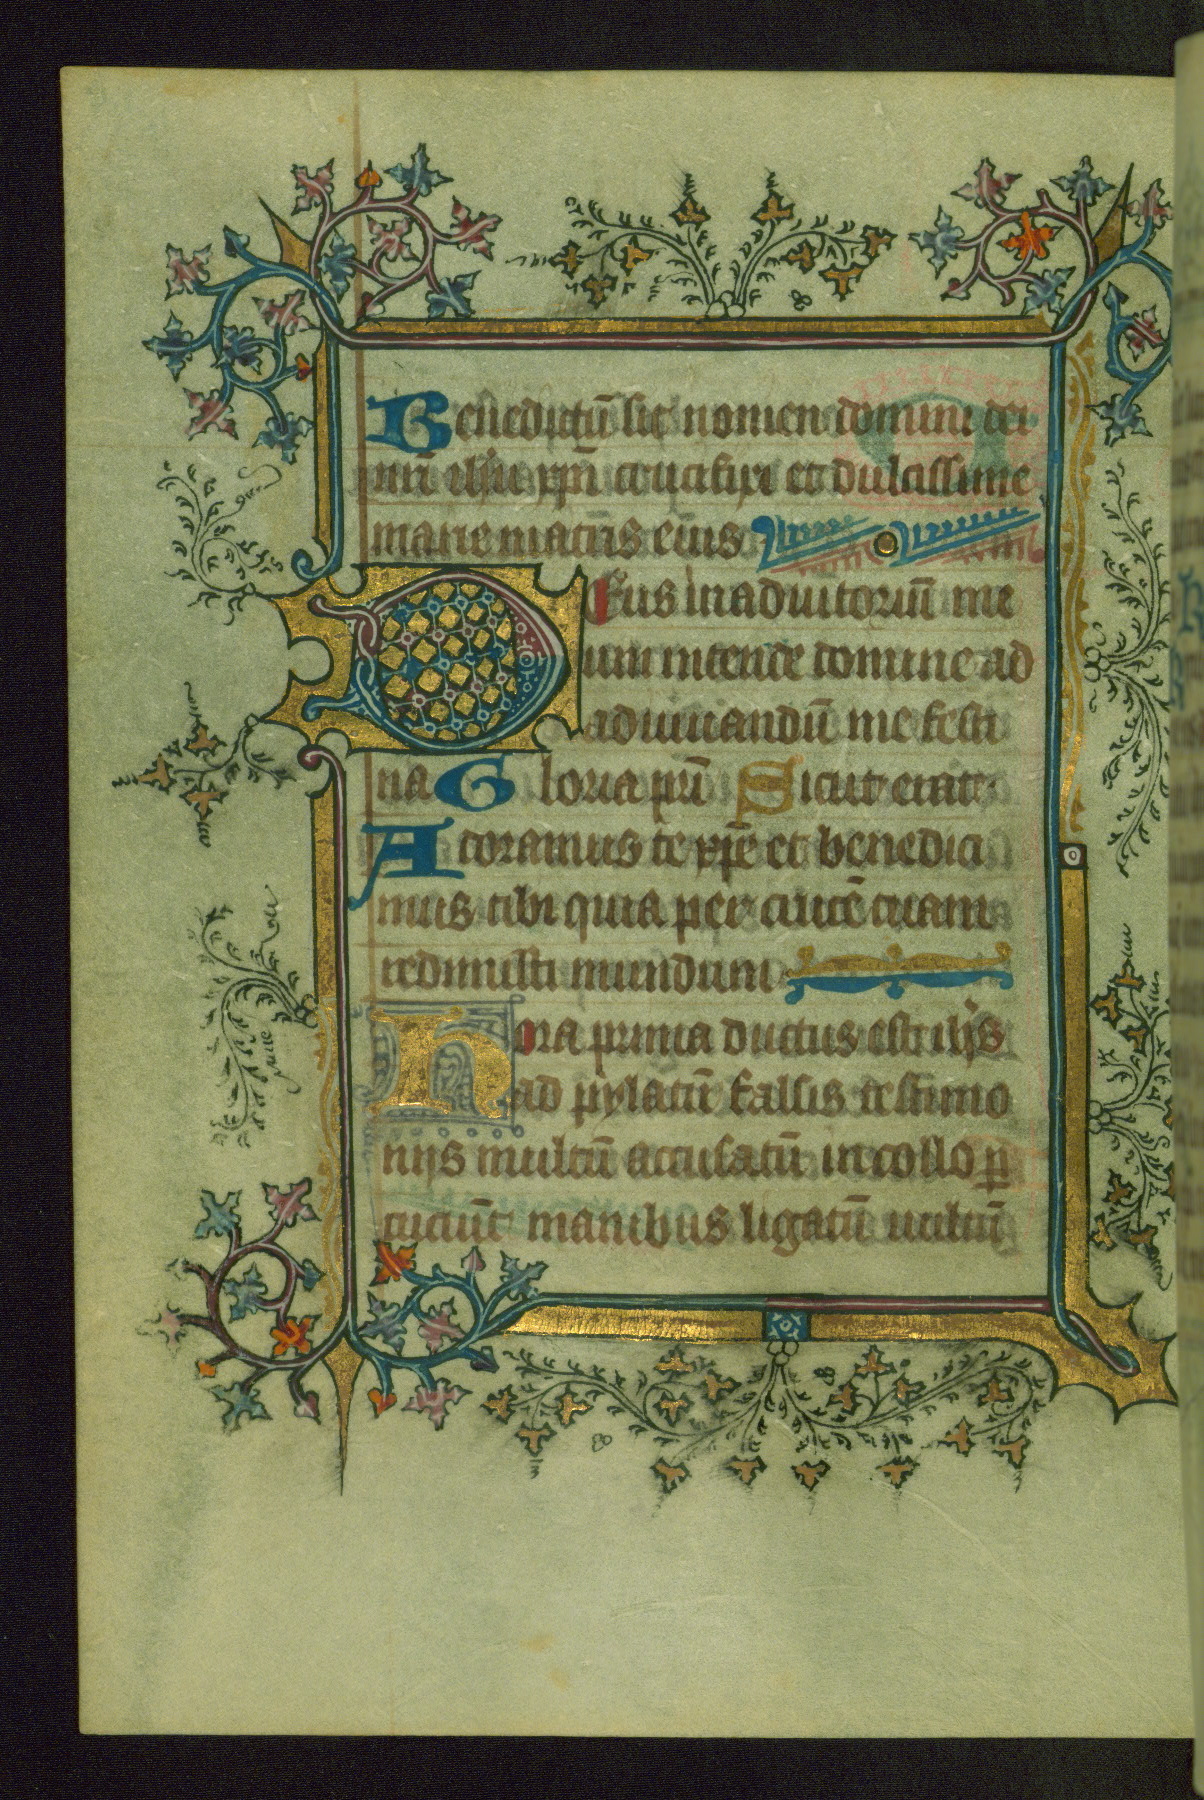 Benedictū sit nomen domini dei
nr̄i ihū xp̄i crucifixi et dulcissime
marie matris eius
Deus in adiutoriū me
um intende domine ad
adiuuandū me festi
na Gloria pr̄i Sicut erat
Adoramus te xp̄e et benedici
mus tibi quia per crucē tuam
redimisti mundum
Hora prima ductus est ihs
ad pylatū falsis testimo
nijs multū accusatū in collo p̄
cuciūt manibus ligatū uultū